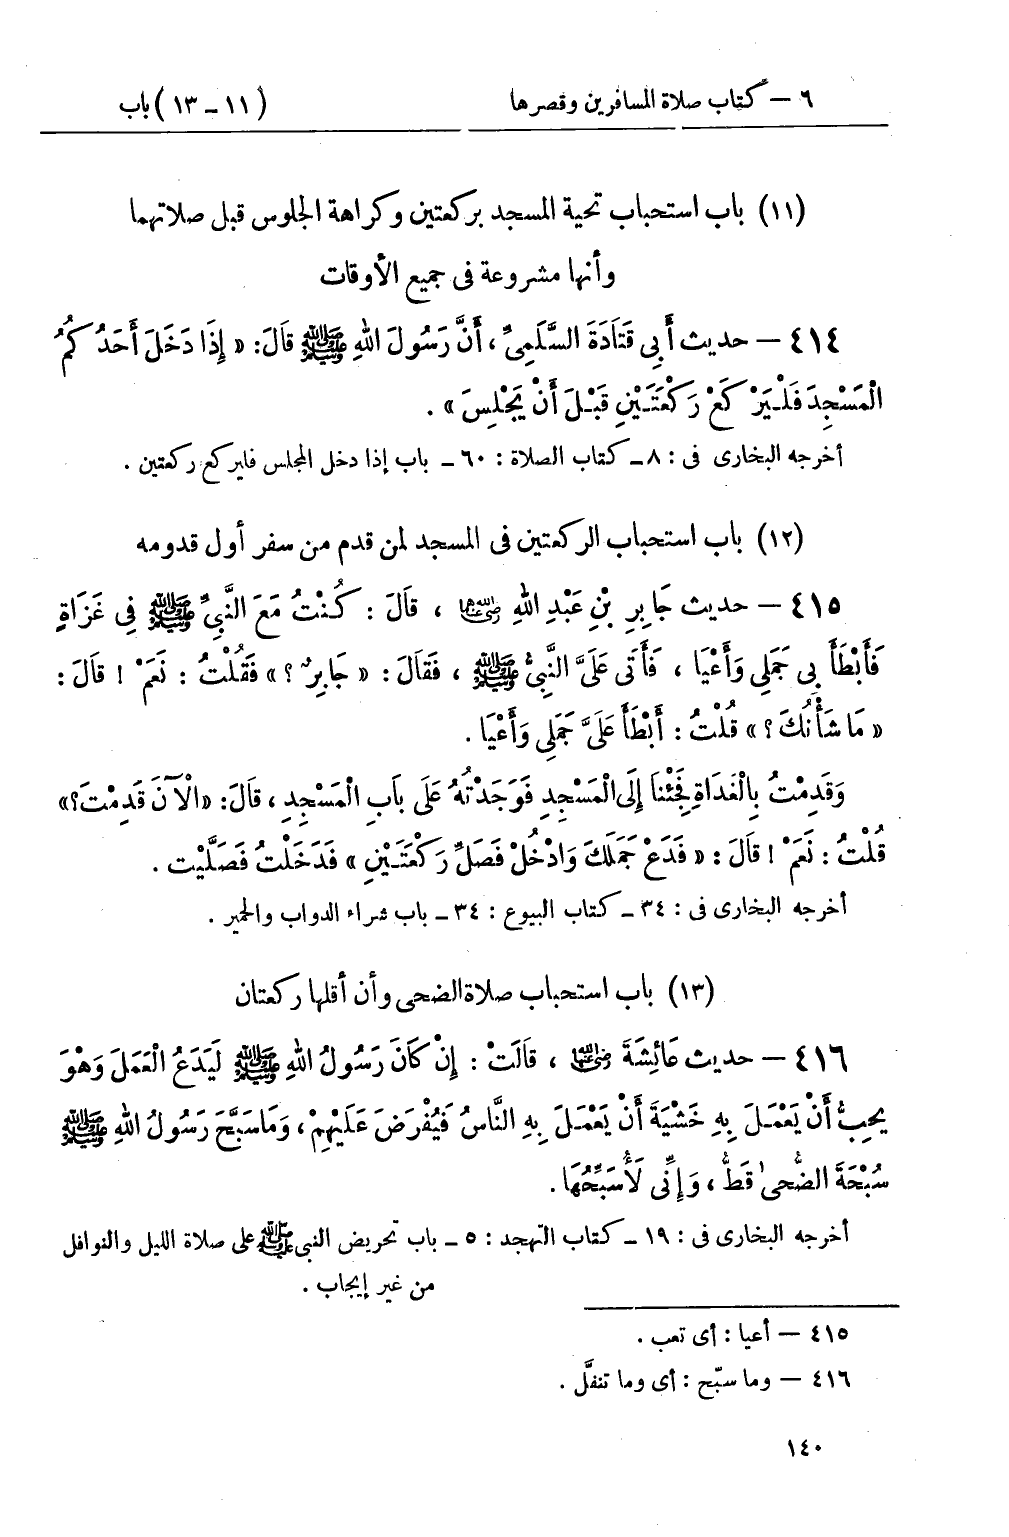 ٦ – كتاب صلاة المسافرين وقصرها (١١ – ١٣) باب
(١١) باب استحباب تحية المسجد بركعتين وكراهة الجلوس قبل صلاتهما
وأنها مشروعة فى جميع الأوقات
٤١٤ – حديث أَبِي قَتَادَةَ السَّلَمِيِّ، أَنَّ رَسُولَ اللهِ ﷺ قَالَ: « إِذَا دَخَلَ أَحَدُكُمُ
الْمَسْجِدَ فَلْيَرْكَعْ رَكْعَتَيْنِ قَبْلَ أَنْ يَجْلِسَ » .
أخرجه البخارى فى : ٨ – كتاب الصلاة : ٦٠ – باب إذا دخل المجلس فليركع ركعتين .
(١٢) باب استحباب الركعتين فى المسجد لمن قدم من سفر أول قدومه
٤١٥ – حديث جَابِرِ بْنِ عَبْدِ اللهِ رضي الله عنهما ، قَالَ : كُنْتُ مَعَ النَّبِيِّ ﷺ فِي غَزَاةٍ
فَأَبْطَأَ بِي جَمَلِي وَأَعْيَا ، فَأَتَى عَلَيَّ النَّبِيُّ ﷺ ، فَقَالَ : « جَابِرٌ ؟ » فَقُلْتُ : نَعَمْ ! قَالَ :
« مَا شَأْنُكَ ؟ » قُلْتُ : أَبْطَأَ عَلَيَّ جَمَلِي وَأَعْيَا .
وَقَدِمْتُ بِالْغَدَاةِ فَجِئْنَا إِلَى الْمَسْجِدِ فَوَجَدْتُهُ عَلَى بَابِ الْمَسْجِدِ ، قَالَ: «الْآنَ قَدِمْتَ؟»
قُلْتُ : نَعَمْ ! قَالَ : « فَدَعْ جَمَلَكَ وَادْخُلْ فَصَلِّ رَكْعَتَيْنِ » فَدَخَلْتُ فَصَلَّيْت .
أخرجه البخارى فى : ٣٤ – كتاب البيوع : ٣٤ – باب شراء الدواب والحمير .
(١٣) باب استحباب صلاة الضحى وأن أقلها ركعتان
٤١٦ – حديث عَائِشَةَ رضي الله عنها ، قَالَتْ : إِنْ كَانَ رَسُولُ اللهِ ﷺ لَيَدَعُ الْعَمَلَ وَهْوَ
يحِبُّ أَنْ يَعْمَلَ بِهِ خَشْيَةَ أَنْ يَعْمَلَ بِهِ النَّاسُ فَيُفْرَضَ عَلَيْهِمْ ، وَمَا سَبَّحَ رَسُولُ اللهِ ﷺ
سُبْحَةَ الضُّحىٰ قَطُّ ، وَإِنِّي لَأُسَبِّحُهَا .
أخرجه البخارى فى : ١٩ – كتاب التهجد : ٥ – باب تحريض النبى ﷺ على صلاة الليل والنوافل
من غير إيجاب .
٤١٥ – أعيا : أى تعب .
٤١٦ – وما سبّح : أى وما تنفَّل .
١٤٠